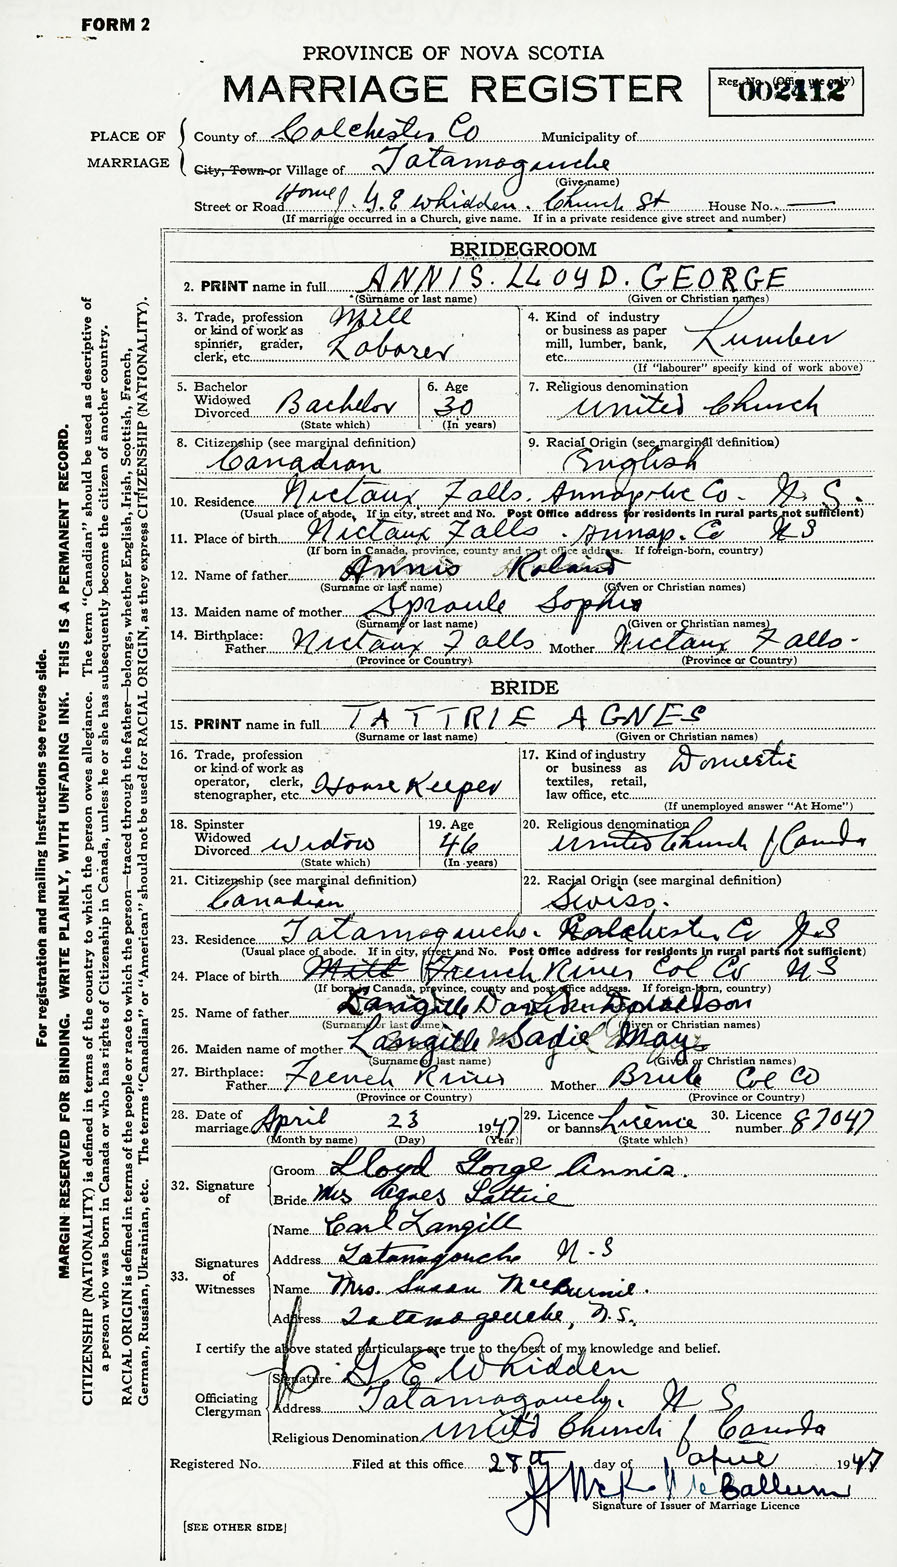 FORM 2
PROVINCE OF NOVA SCOTIA
MARRIAGE REGISTER
Reg. No. (Office use only)
002412
PLACE OF MARRIAGE
County of Colchester Co Municipality of
City, Town or Village of Tatamagouche
(Give name)
Street or Road Home G. E Whidden. Church St House No. —
(If marriage occurred in a Church, give name. If in a private residence give street and number)
BRIDEGROOM
2. PRINT name in full ANNIS. LLOYD. GEORGE
(Surname or last name) (Given or Christian names)
3. Trade, profession or kind of work as spinner, grader, clerk, etc. Mill Laborer
4. Kind of industry or business as paper mill, lumber, bank, etc. Lumber
(If "labourer" specify kind of work above)
5. Bachelor Widowed Divorced Bachelor
(State which)
6. Age 30
(In years)
7. Religious denomination United Church
8. Citizenship (see marginal definition) Canadian
9. Racial Origin (see marginal definition) English
10. Residence Nictaux Falls. Annapolis Co. N. S.
(Usual place of abode. If in city, street and No. Post Office address for residents in rural parts not sufficient)
11. Place of birth Nictaux Falls. Annap. Co N S
(If born in Canada, province, county and post office address. If foreign-born, country)
12. Name of father Annis Roland
(Surname or last name) (Given or Christian names)
13. Maiden name of mother Sproule Sophia
(Surname or last name) (Given or Christian Names)
14. Birthplace: Father Nictaux Falls Mother Nictaux Falls.
(Province or Country) (Province or Country)
BRIDE
15. PRINT name in full TATTRIE AGNES
(Surname or last name) (Given or Christian names)
16. Trade, profession or kind of work as operator, clerk, stenographer, etc. House Keeper
17. Kind of industry or business as textiles, retail, law office, etc. Domestic
(If unemployed answer "At Home")
18. Spinster Widowed Divorced Widow
(State which)
19. Age 46
(In years)
20. Religious denomination United Church of Canada
21. Citizenship (see marginal definition) Canadian
22. Racial Origin (see marginal definition) Swiss.
23. Residence Tatamagouche. Colchester Co N.S
(Usual place of abode. If in city, street and No. Post Office address for residents in rural parts not sufficient)
24. Place of birth French River Col Co N S
(If born in Canada, province, county and post office address. If foreign-born, country)
25. Name of father Langille Donaldson
(Surname or last name) (Given or Christian names)
26. Maiden name of mother Langille Sadie May
(Surname or last name) (Given or Christian names)
27. Birthplace: Father French River Mother Brule Col Co
(Province or Country) (Province or Country)
28. Date of marriage April 23 1947
(Month by name) (Day) (Year)
29. Licence or banns Licence
(State which)
30. Licence number 87047
32. Signature of
Groom Lloyd Gorge Annis.
Bride Mrs Agnes Tattrie
33. Signatures of Witnesses
Name Earl Langill
Address Tatamagouche N-S
Name Mrs. Susan McBurnie.
Address Tatamagouche, N.S.
I certify the above stated particulars are true to the best of my knowledge and belief.
Officiating Clergyman
Signature G. E Whidden
Address Tatamagouche. N S.
Religious Denomination United Church of Canada
Registered No. Filed at this office 28th day of April 1947
Signature of Issuer of Marriage Licence
[SEE OTHER SIDE]
For registration and mailing instructions see reverse side.
MARGIN RESERVED FOR BINDING. WRITE PLAINLY, WITH UNFADING INK. THIS IS A PERMANENT RECORD.
CITIZENSHIP (NATIONALITY) is defined in terms of the country to which the person owes allegiance. The term "Canadian" should be used as descriptive of
a person who was born in Canada or who has rights of Citizenship in Canada, unless he or she has subsequently become the citizen of another country.
RACIAL ORIGIN is defined in terms of the people or race to which the person—traced through the father—belongs, whether English, Irish, Scottish, French,
German, Russian, Ukrainian, etc. The terms "Canadian" or "American" should not be used for RACIAL ORIGIN, as they express CITIZENSHIP (NATIONALITY).